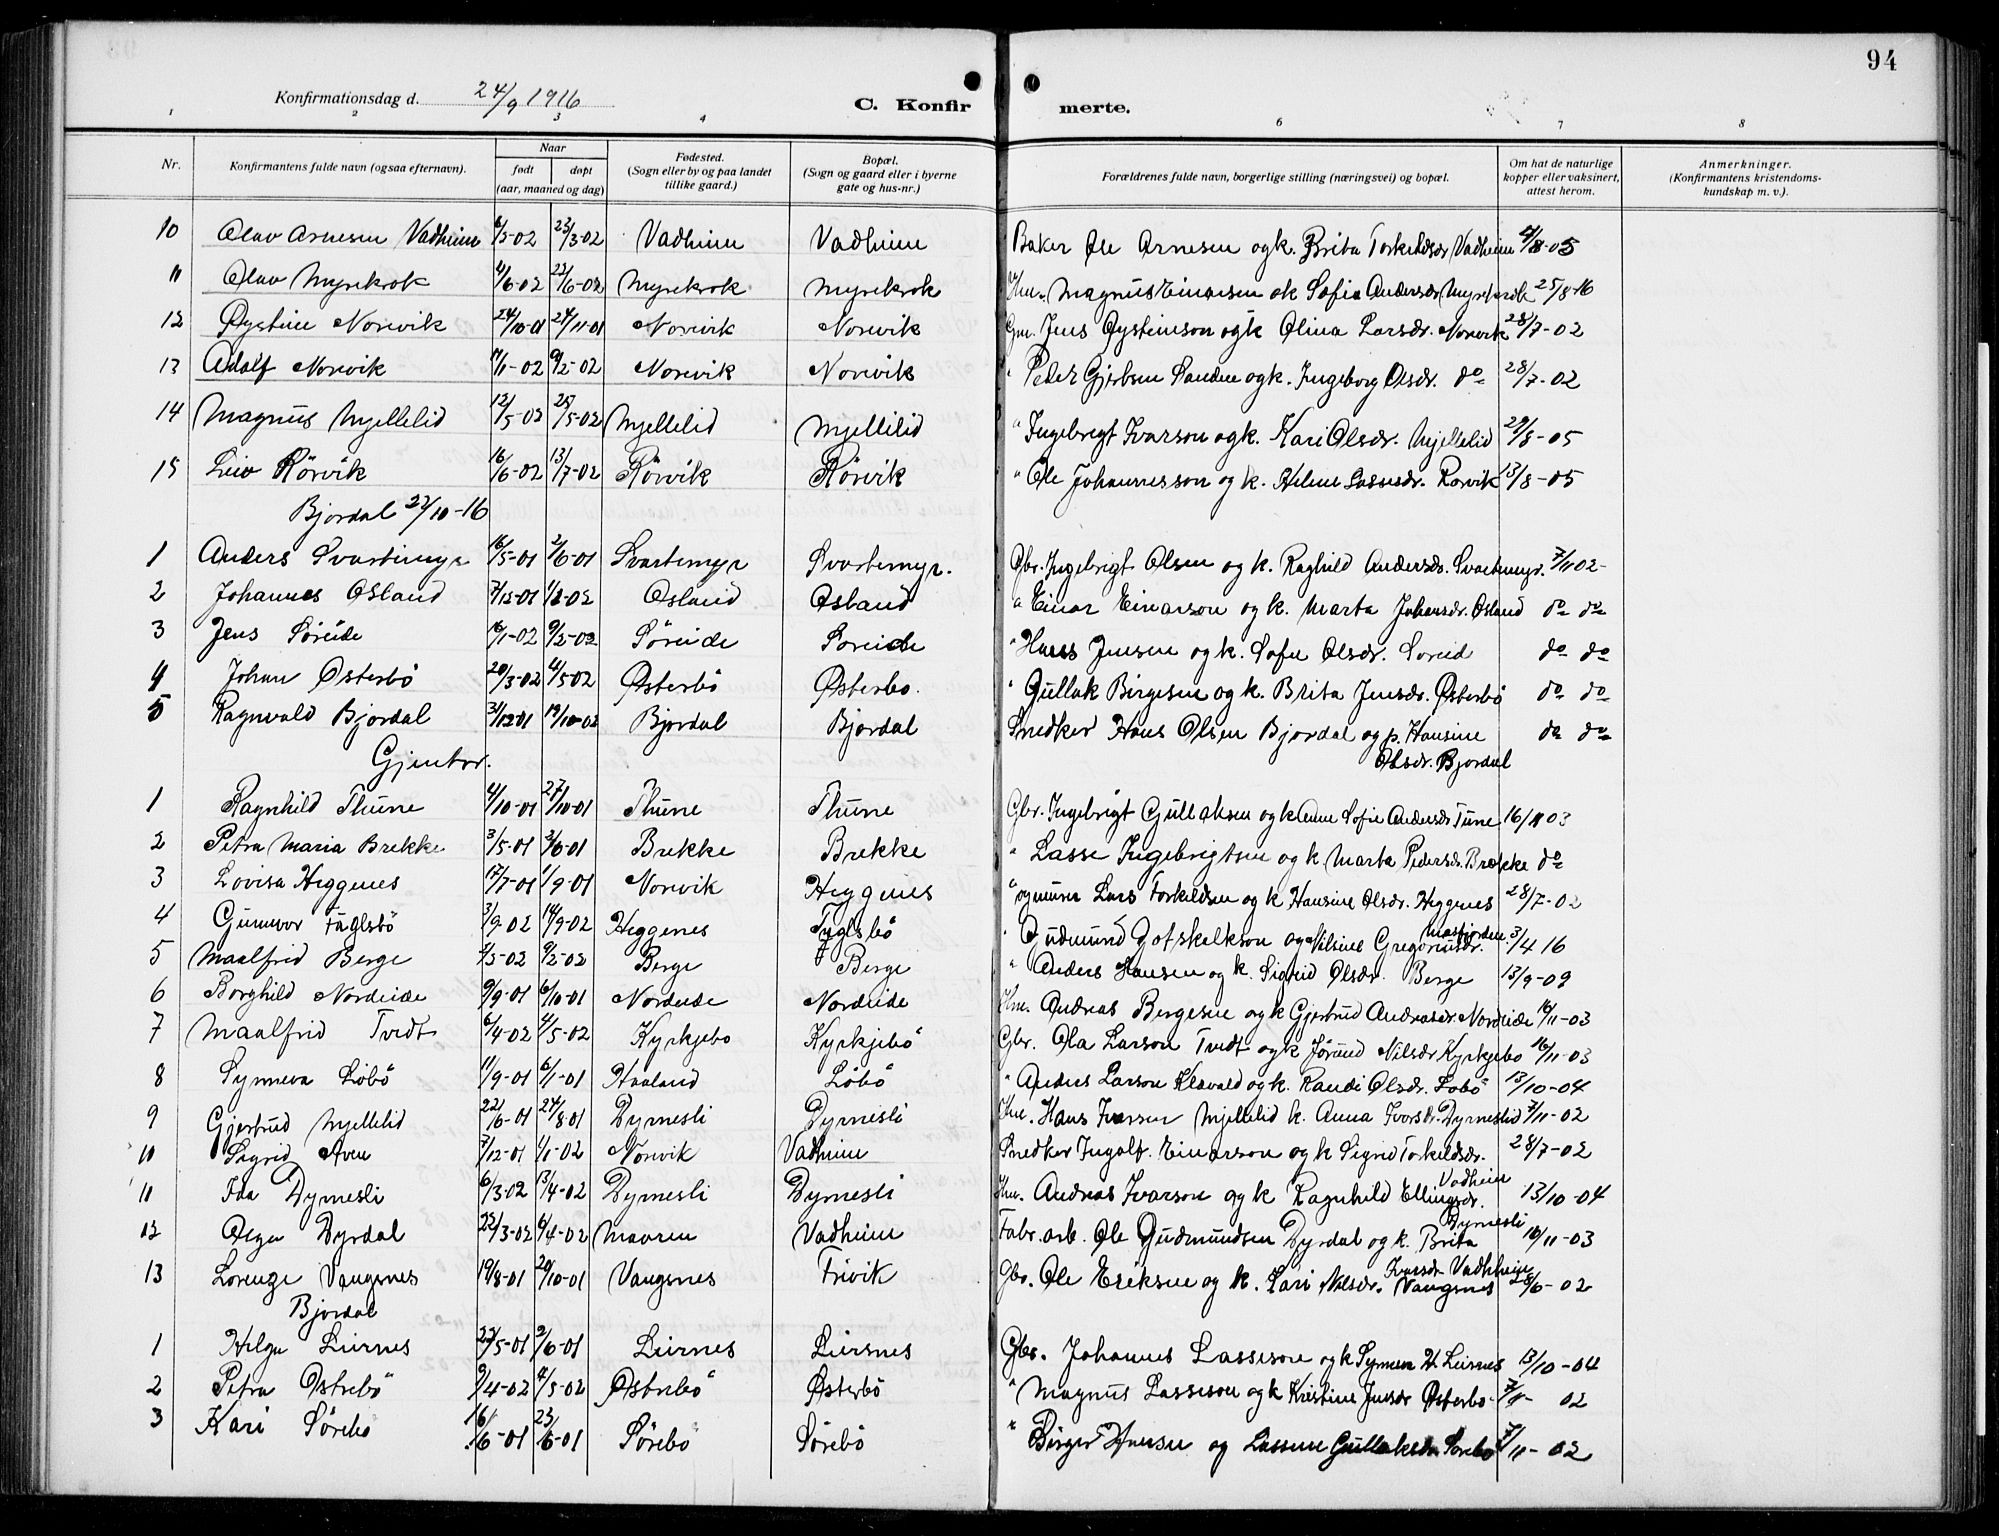 94
Konfirmationsdag d. 24/9 1916
C. Konfirmerte.
1 2 3 4 6 7 8
Nr. Konfirmantens fulde navn (ogsaa efternavn). Naar født døpt (aar, maaned og dag) Fødested. (Sogn eller by og paa landet tillike gaard.) Bopæl. (Sogn og gaard eller i byerne gate og hus-nr.) Forældrenes fulde navn, borgerlige stilling (næringsvei) og bopæl. Om hat de naturlige kopper eller vaksinert, attest herom. Anmerkninger. (Konfirmantens kristendomskundskap m. v.)
10 Olav Arnesen Vadheim 6/3-02 23/3-02 Vadheim Vadheim Baker Ole Arnesen og k. Brita Torkeldsdr Vadheim 4/8-05
11 Olav Myrekrok 4/6-02 22/6-02 Myrekrok Myrekrok Hm. Magnus Einarsen ok Sofia Andersdr Myrekrok 25/8-16
12 Øystein Norevik 24/10-01 24/11-01 Norevik Norevik Gm. Jens Øysteinson og k Olina Larsdr. Norevik 28/7-02
13 Adolf Norevik 11/1-02 9/2-02 Norevik Norevik " Peder Gjertsen Sanden og k. Ingeborg Olsdr. do 28/7-02
14 Magnus Mjellelid 12/5-02 25/5-02 Mjellelid Mjellilid " Ingebrigt Ivarson og k. Kari Olsdr. Mjellelid 29/8-05
15 Leiv Rörvik 16/6-02 13/7-02 Rörvik Rörvik " Ole Johannesson og k. Helene Lassesdr. Rorvik 13/8-05
Bjordal 22/10-16
1 Anders Svartemyr 16/5-01 2/6-01 Svartemyr Svartemyr. Gbr. Ingebrigt Olsen og k. Raghild Andersdr. Svartemyr. 7/11 02-
2 Johannes Osland 7/12-01 1/2-02 Osland Osland " Einar Einarson og k. Marta Johansdr. Osland do do
3 Jens Søreide 16/1-02 9/2-02 Söreide Soreide " Hans Jensen og k. Sofie Olsdr. Soreid do do
4 Johan Østerbö 20/3-02 4/5-02 Østerbö Østerbo. " Gullak Birgesen og k. Brita Jensdr. Østerbö do do
5 Ragnvald Bjordal 31/12-01 19/10-02 Bjordal Bjordal Snedker Hans Olsen Bjordal og p. Hansine do do
Olsdr. Bjordal
Gjentor.
1 Ragnhild Thune 4/10-01 27/10-01 Thune Thune Gbr. Ingebrigt Gullaksen og k Anne Sofie Andersdr Tune 16/11 03
2 Petra Maria Brekke 3/5-01 2/6-01 Brekke Brekke " Lasse Ingebrigtsen og k Marta Pedersdr. Brekke do
3 Lovisa Heggenes 17/7-01 1/9-01 Norevik Heggenes Lars Torkildsen og k Hansine Olsdr. Heggenes 28/7-02
4 Gunnvor Fuglsbö 3/9-02 14/9-02 Heggenes Fuglsbö " Gudmund Gotskalkson og Nilsine Gregoriusdr. Masfjorden 3/4 16
5 Maalfrid Berge 7/5-02 9/2-02 Berge Berge " Anders Hansen og k. Sigrid Olsdr. Berge 13/9-09
6 Borghild Nordeide 9/9-01 6/10-01 Nordeide Nordeide Hm. Andreas Bergesen og k Gjertrud Andreasdr. Nordeide 16/11-03
7 Maalfrid Tvedt 6/4-02 4/5-02 Kyrkjebo Kyrkjebö Gbr. Ola Larson Tvedt og k Jørund Nilsdr. Kyrkjebo 16/11-03
8 Synneva Løbö 11/9-01 6/1-01 Haaland Löbö " Anders Larson Klævold og k. Randi Olsdr. Lobö 13/10-04
9 Gjertrud Mjellelid 22/6-01 24/8-01 Dyrnesli Dyrnesli Hm. Hans Iversen Mjellelid k. Anna Iversdr. Dyrneslid 7/11-02
10 Sigrid Aven 7/12-01 4/1-02 Norevik Vadheim Snedker Ingolf. Einarson og k Sigrid Torkeldsdr. 28/7-02
Vadheim
11 Ida Dyrnesli 6/3-02 13/4-02 Dyrnesli Dyrnesli Hm. Andreas Ivarson og k Ragnhild Ellingsdr. 13/10-04
Dyrnesli
12 Olga Dyrdal 22/3-02 6/4-02 Maaren Vadheim Fabr. arb. Ole Gudmundsen Dyrdal og k. Brita 16/11-03
Ivarsdr Vadheim
13 Lorenze Vangsnes 19/8-01 20/10-01 Vangsnes Trivik Gbr. Ole Eriksen og k. Kari Nilsdr. Vangsnes 28/6-02
Bjordal
1 Helga Leirnes 22/5-01 2/6-01 Leirnes Leirsnes Gbr. Johannes Lasseson og k Synneva H. Leirnes 13/10-04
2 Petra Østrebö 9/4-02 4/5-02 Østrebö Østerbö " Magnus Lasseson og k Kristine Jensdr Østerbo. 7/11- 02
3 Kari Sørebø 16/6-01 23/6-01 Sörebo Sørebö " Birger Hansen og Lassine Gullaksdr. Sorebo 7/11-02